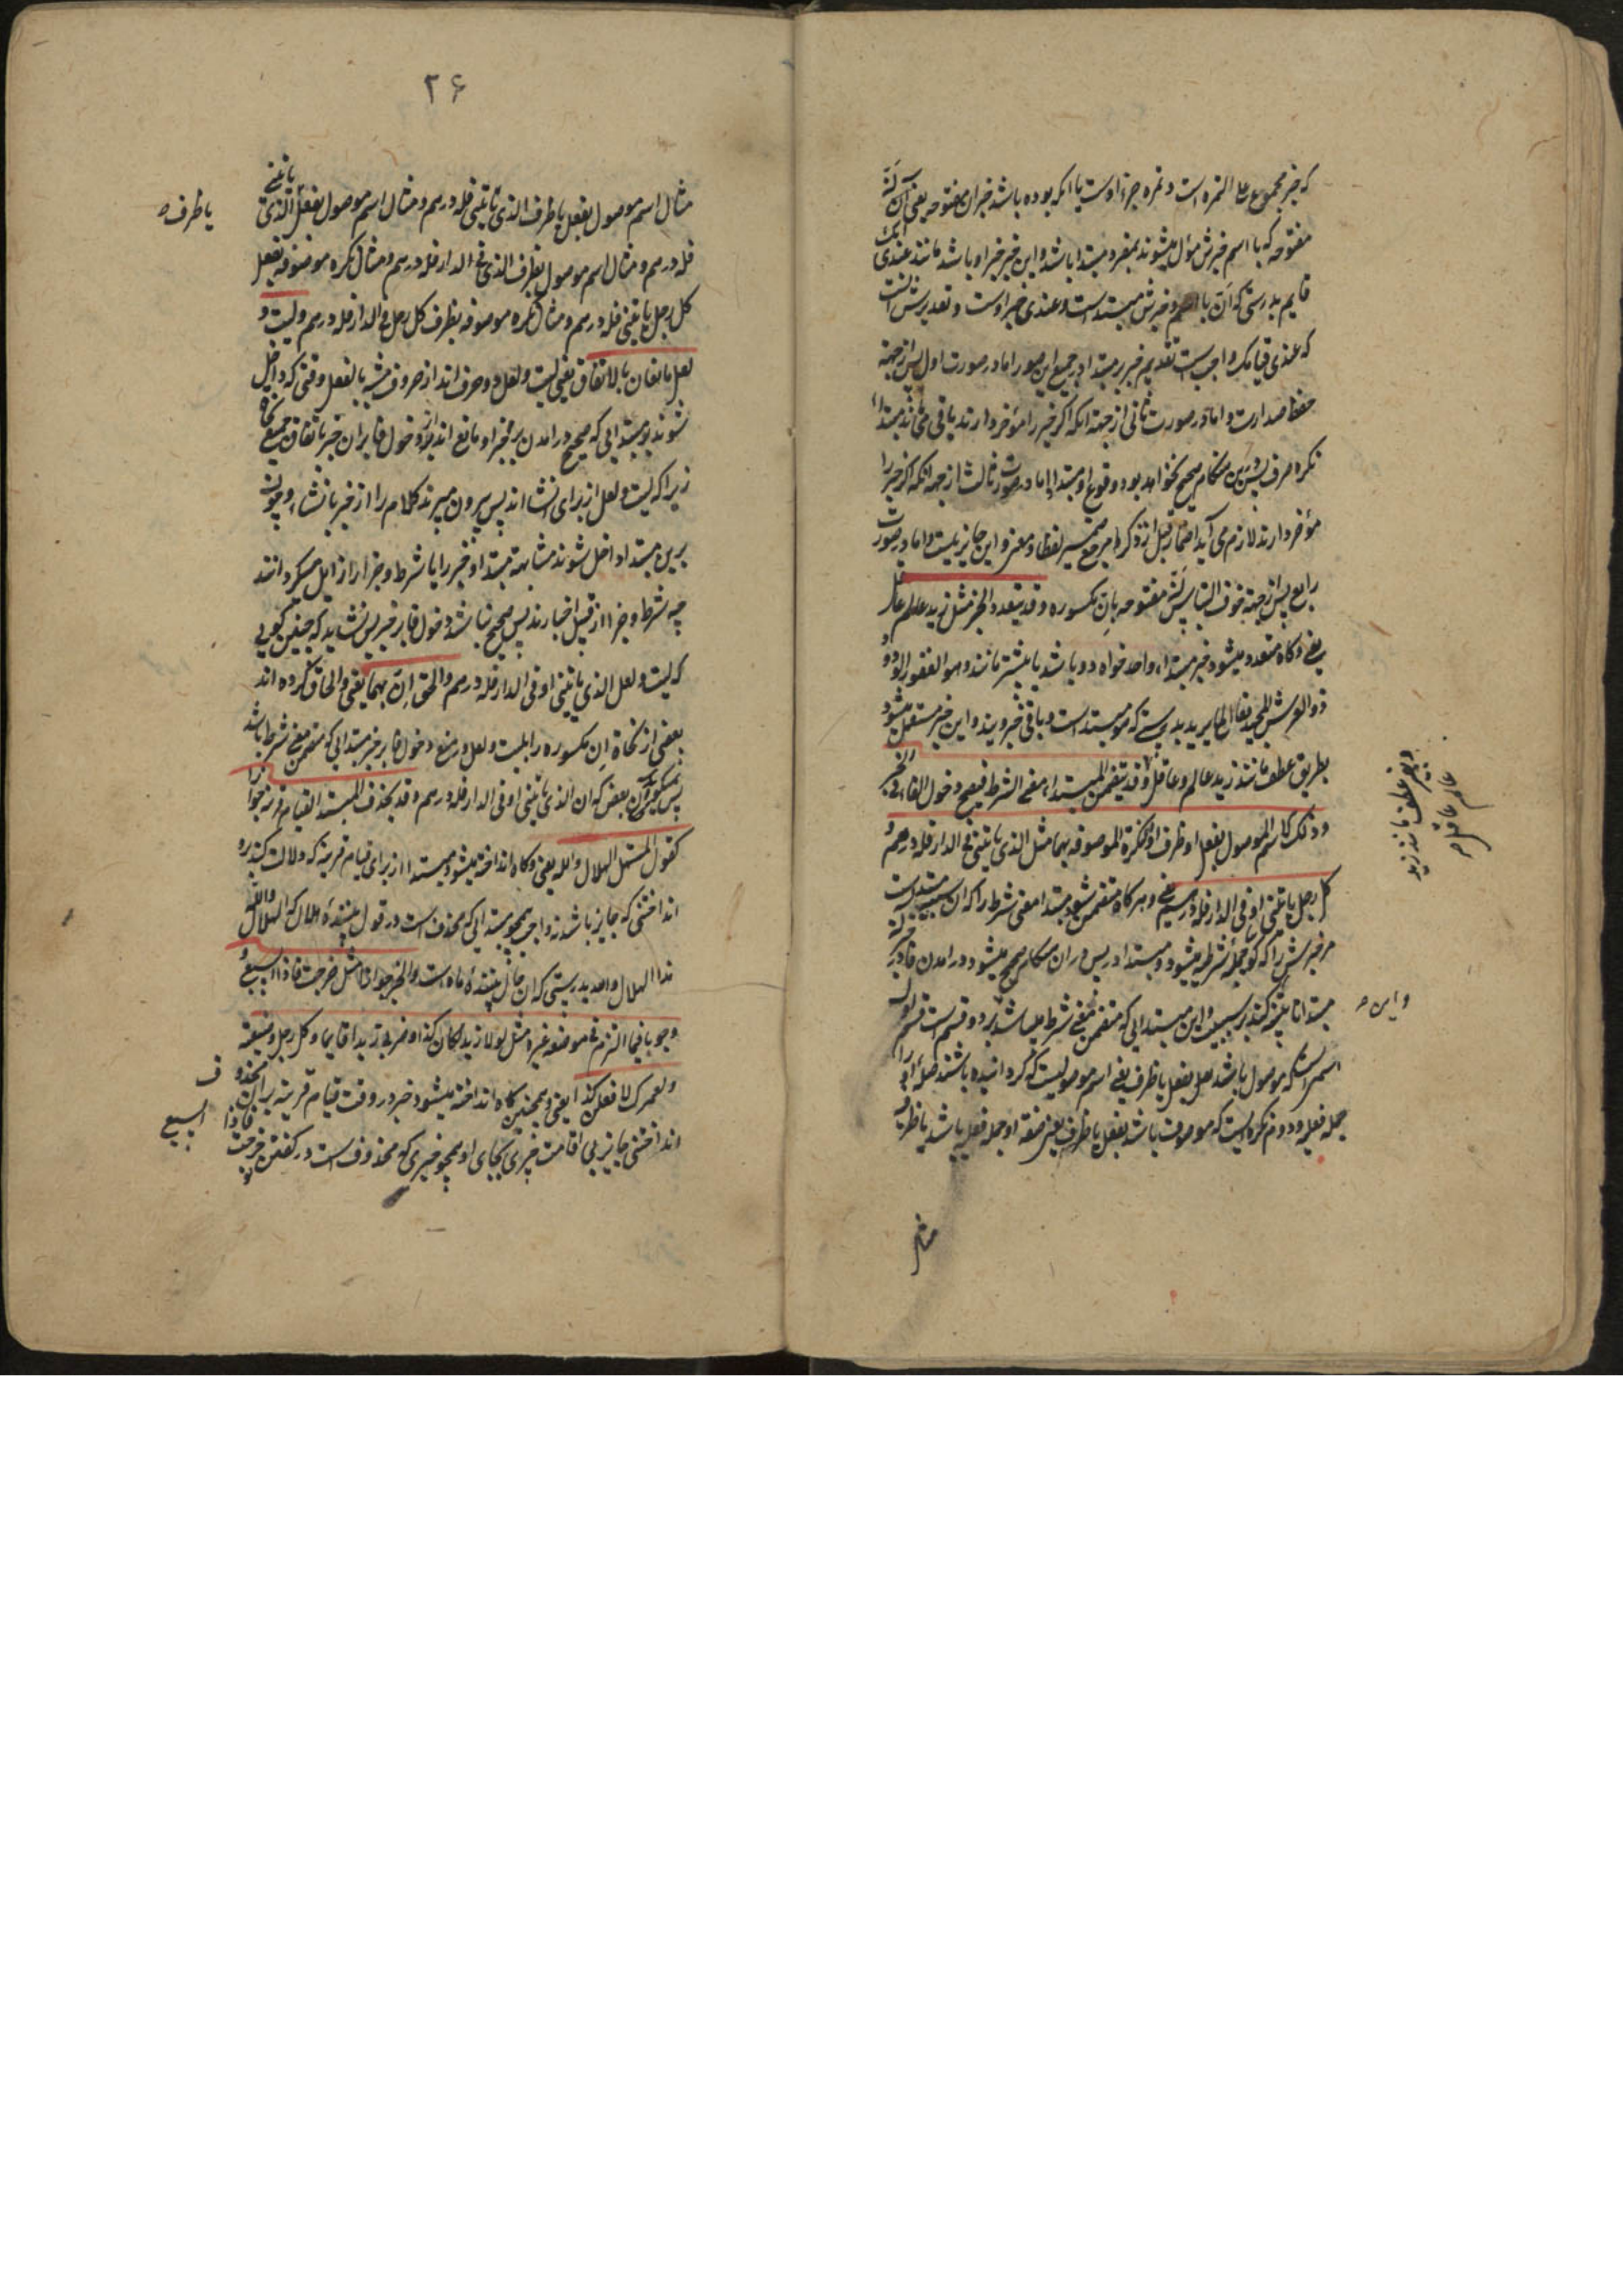 که خبر مجموع علی التمره است و تمره جزء اوست یا آنکه بوده باشد خبر از ان مفتوحه یعنی آن
مفتوحه که با اسم و خبرش مؤل میشوند بمفرد مبتدا باشد و این خبر خبر او باشد مانند عندی انک
قایم بدرستی که ان با اسم و خبرش مبتداست و عندی خبر اوست و تقدیرش انست
که عندی قیامک واجب است تقدیم خبر بر مبتدا در جمیع این صور اما در صورت اول پس از جهة
حفظ صدارت و اما در صورت ثانی از جهة آنکه اگر خبر را مؤخر دارند باقی می ماند مبتداء
نکره صرف پس درین هنگام صحیح نخواهد بود وقوع او مبتدا اما در صورت ثالث از جهة آنکه اگر خبر را
مؤخر دارند لازم می آید اضمار قبل از ذکر مرجع ضمیر لفظا و معنی و این جایز نیست و اما در صورت
رابع پس از جهة خوف التباس ان مفتوحه بان مکسوره وقد یتعدد الخبر مثل زید عالم عاقل
یعنی و کاه متعدد میشود خبر مبتداء واحد خواه دو باشد یا بیشتر مانند وهو الغفور الودود
ذو العرش المجید فعال لما یرید بدرستی که هو مبتداست و باقی خبر ویند و این خبر مستعمل میشود
بطریق عطف مانند زید عالم وعاقل وقد یتضمن المبتداء معنی الشرط فیصح دخول الفاء فی الخبر
وذلک کالاسم الموصول بفعل او ظرف او النکرة الموصوفة بهما مثل الذی یاتینی او فی الدار فله درهم و
کل رجل یاتینی او فی الدار فله درهم یعنی و هرکاه متضمن شود مبتدا معنی شرط را که ان سببیت مبتداست
مر خبرش را که کویا جمله شرطیه میشود و مبتدا در پس در ان هنگام صحیح میشود در امدن فا در خبر
مبتدا تا تنبیه کند بر سببیت و این مبتدایی که متضمن معنی شرط میباشد بر دو قسم است قسم اول
اسمی است که موصول باشد بفعل یا ظرف یعنی اسم موصولیست که کردانیده باشند صلۀ او را
جمله فعلیه و دوم نکره ایست که موصوف باشد بفعل یا ظرف یعنی صفة او جمله فعلیه باشد یا ظرف
و این
و بغیر عطف مانند زید
عالم عاقل
مثال
۲۶
مثال اسم موصول بفعل یا ظرف الذی یاتینی فله درهم و مثال اسم موصول بفعل الذی یاتینی
یا ظرف
فله درهم و مثال اسم موصول بظرف الذی فی الدار فله درهم و مثال نکره موصوفه بفعل
کل رجل یاتینی فله درهم و مثال نکره موصوفه بظرف کل رجل فی الدار فله درهم ولیت و
لعل مانعان بالاتفاق یعنی لیت و لعل دو حرف اند از حروف مشبه بالفعل وقتی که داخل
شوند بر مبتدایی که صحیح در امدن بر خبر او مانع اند از دخول فا بر ان خبر باتفاق جمیع نحاة
زیرا که لیت و لعل از برای انشا اند پس بیرون میبرند کلام را از خبر بانشاء و چون
برین مبتدا داخل شوند مشابهة مبتدا و خبر را با شرط و جزا زایل میکردانند
چه شرط و جزا از قبیل اخبارند پس صحیح نباشد دخول فا بر خبر پس نشاید که چنین کویی
که لیت و لعل الذی یاتینی او فی الدار فله درهم والحق ان بهما یعنی و الحاق کرده اند
بعضی از نحاة ان مکسوره را بلیت و لعل در منع دخول فا بر خبر مبتدایی که متضمن معنی شرط باشد
پس نمیکویند آن بعض که ان الذی یاتینی او فی الدار فله درهم وقد یحذف المبتدا لقیام قرینة جوازا
کقول المستهل الهلال والله یعنی و کاه انداخته میشود مبتدا از برای قیام قرینه که دلالت کند برو
انداختنی که جایز باشد نه واجب همچو مبتدایی که محذوف است در قول بیننده هلال که الهلال والله
هذا الهلال والله بدرستی که ان حال بیننده ماه است والخبر جوازا مثل خرجت فاذا السبع و
وجوبا فیما التزم فی موضعه غیره مثل لولا زید لکان کذا و ضربی زیدا قایما و کل رجل وضیعته
ولعمرک لافعلن کذا یعنی و همچنین کاه انداخته میشود خبر در وقت قیام قرینه بر ان محذوف
انداختنی جایز بی اقامت خبری بجای او همچو خبری که محذوف است در کفتن خرجت فاذا السبع